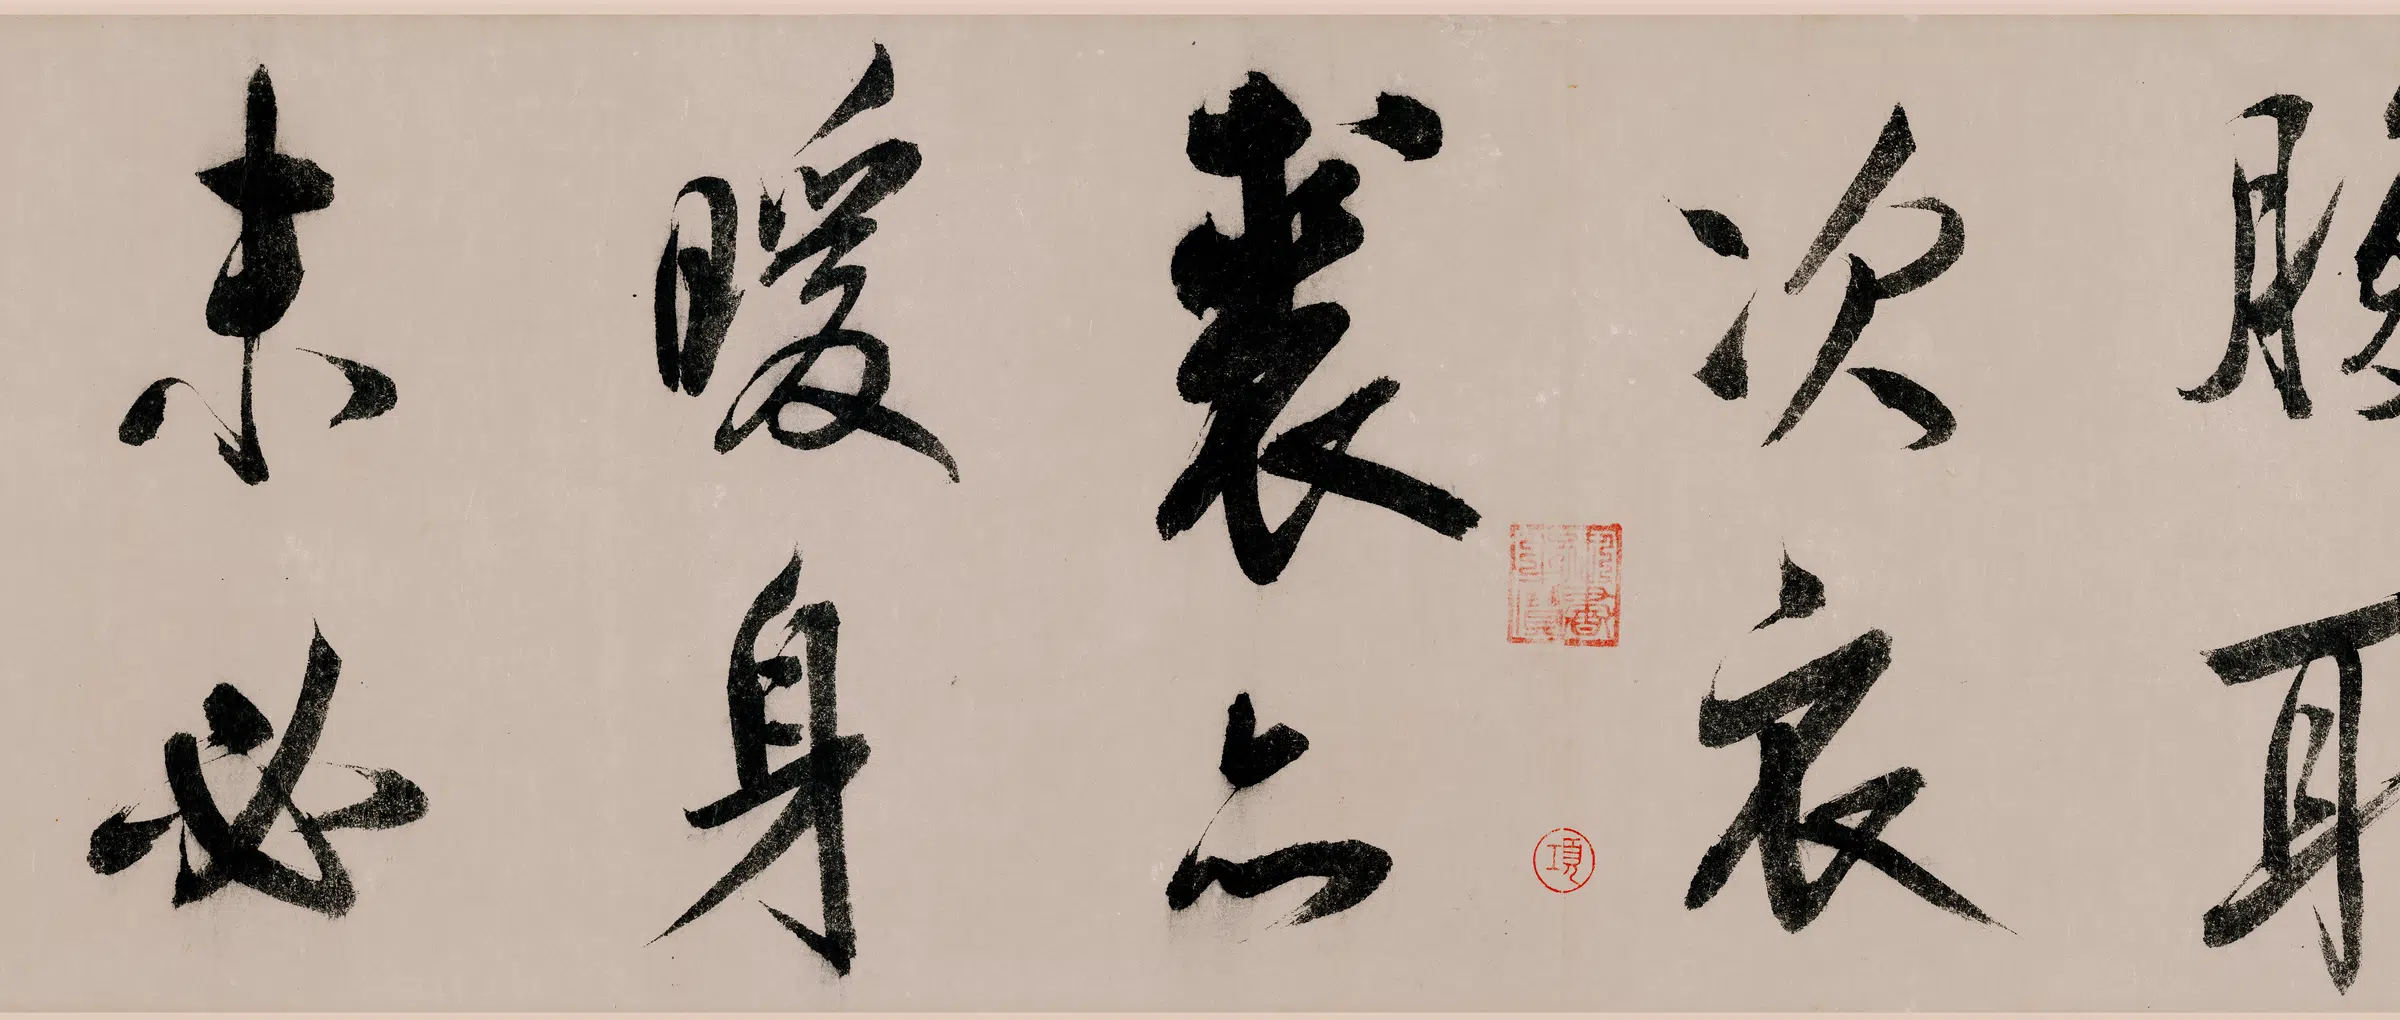 腹耳
次衣
裘亦
暖身
未必
項